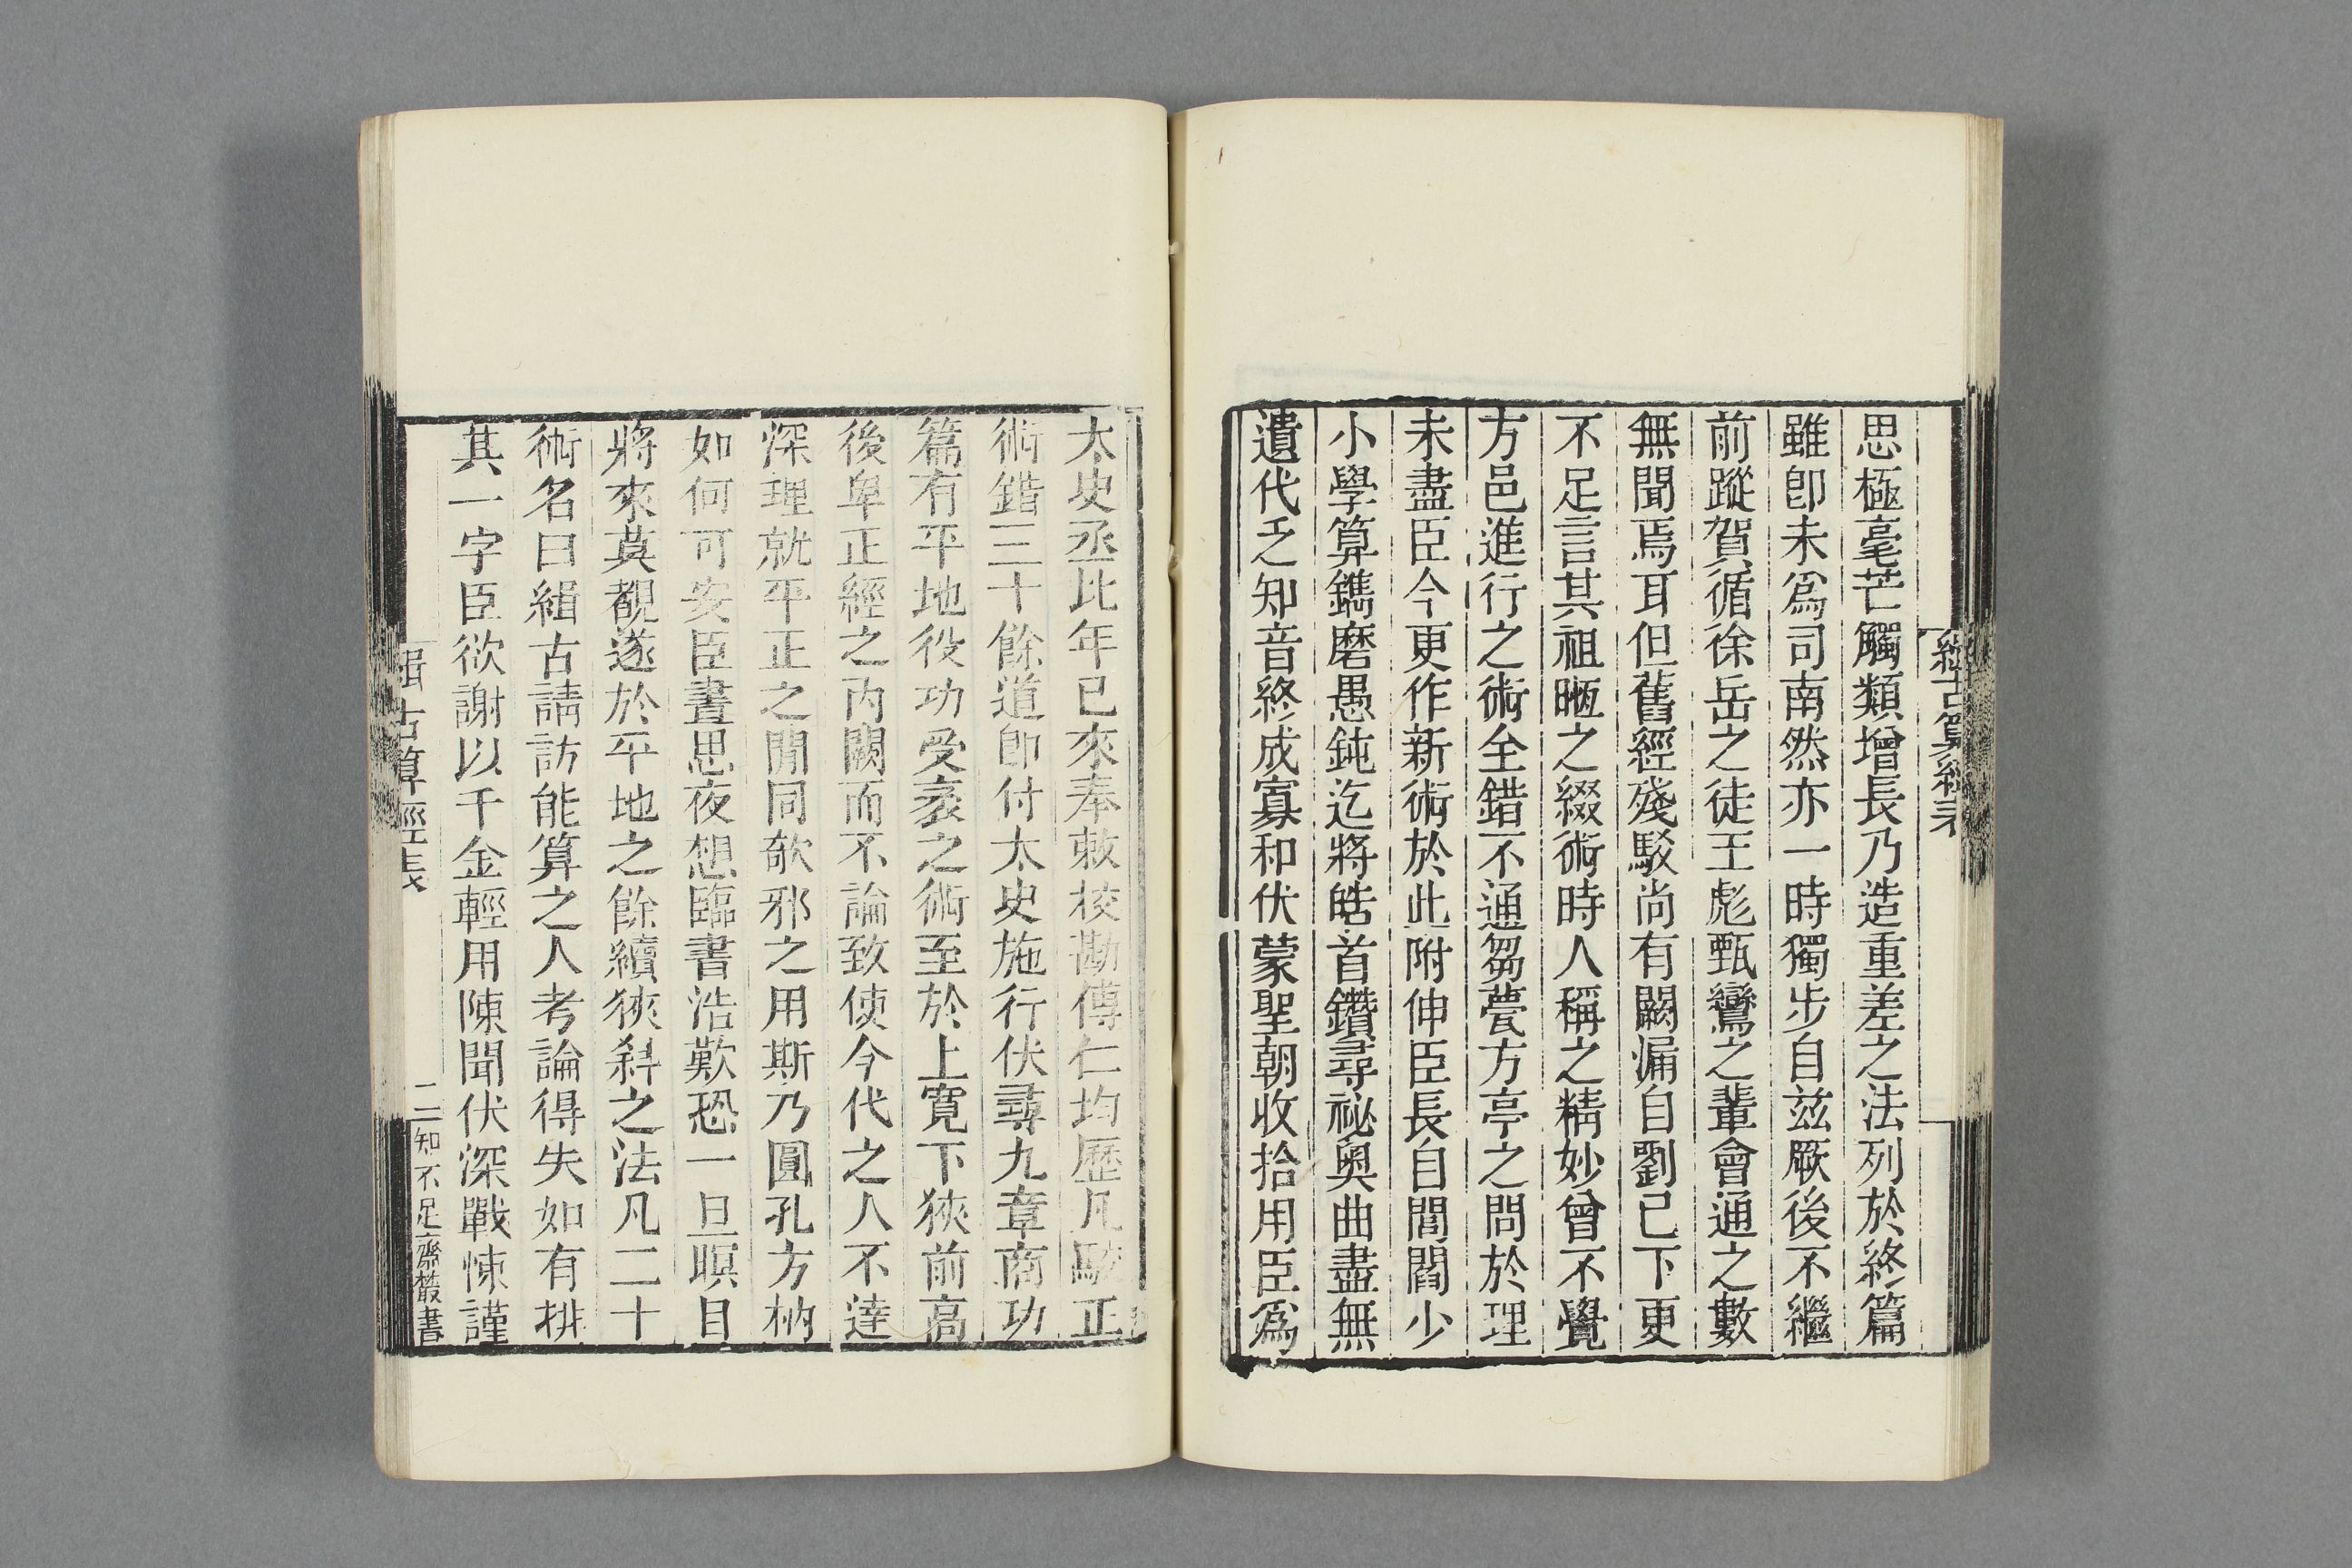 緝古算經表
思極毫芒觸類增長乃造重差之法列於終篇
雖卽未爲司南然亦一時獨步自茲厥後不繼
前蹤賀循徐岳之徒王彪甄鸞之輩會通之數
無聞焉耳但舊經殘駁尚有闕漏自劉已下更
不足言其祖暅之綴術時人稱之精妙曾不覺
方邑進行之術全錯不通芻甍方亭之問於理
未盡臣今更作新術於此附伸臣長自閭閻少
小學算鐫磨愚鈍迄將皓首鑽尋祕奧曲盡無
遺代乏知音終成寡和伏蒙聖朝收拾用臣爲
太史丞比年已來奉敕校勘傅仁均歷凡駁正
術錯三十餘道卽付太史施行伏尋九章商功
篇有平地役功受袤之術至於上寬下狹前高
後卑正經之內闕而不論致使今代之人不達
深理就平正之閒同欹邪之用斯乃圓孔方枘
如何可安臣晝思夜想臨書浩歎恐一旦瞑目
將來莫覩遂於平地之餘續狹斜之法凡二十
術名曰緝古請訪能算之人考論得失如有排
其一字臣欲謝以千金輕用陳聞伏深戰悚謹
緝古算經表
二
知不足齋叢書